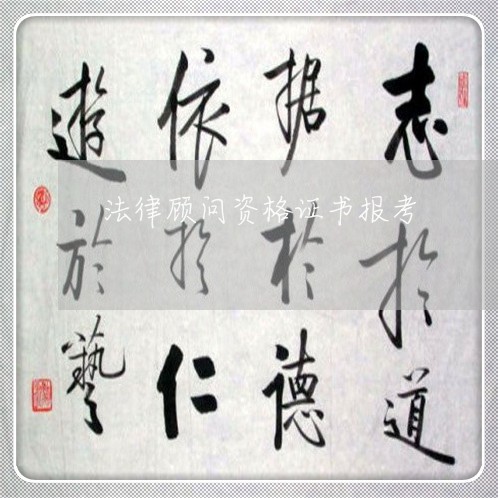 志於道
据於德
依於仁
遊於藝
法律顾问资格证书报考